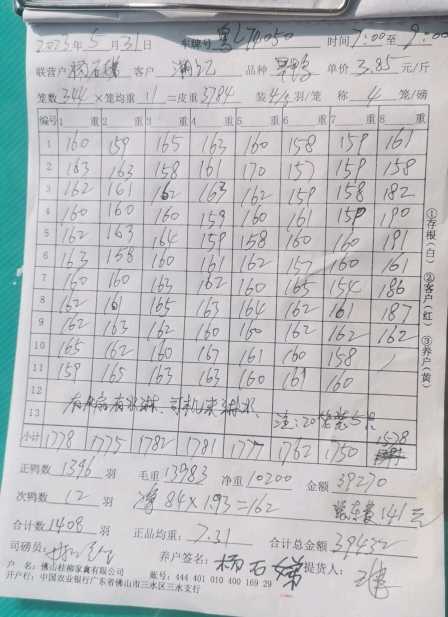 2023年5月31日 车牌号 粤 时间 7:00至9:00
联营户 杨石 客户 品种 单价 3.85 元/斤
笼数 344 ×笼均重 11 =皮重 3784 装4/3羽/笼 称 4 笼/磅
编号 1 重 2 重 3 重 4 重 5 重 6 重 7 重 8 重
1 160 159 165 163 160 158 159 161
2 163 163 158 161 170 157 159 158
3 162 161 162 163 162 159 158 182
4 160 160 160 159 160 161 159 190
5 162 163 164 159 158 160 160 191
6 163 158 160 161 162 157 160 161
7 160 160 163 162 160 165 154 186
8 162 161 165 163 164 162 161 187
9 162 163 162 160 160 162 162 162
10 165 162 160 167 161 160 158
11 159 165 163 163 160 161 160
12
13 注:20笼装5只
小计 1778 1775 1782 1781 1777 1762 1750 1578
正鸭数 1396 羽 毛重 13983 净重 10200 金额 39270
次鸭数 12 羽 净84×1.93=162 141元
合计数 1408 羽 正品均重: 7.31 合计总金额 39432
司磅员: 养户签名: 杨石 提货人:
户 名: 佛山桂柳家禽有限公司 账号: 444 401 010 400 169 29
开户行: 中国农业银行广东省佛山市三水区三水支行
①存根(白) ②客户(红) ③养户(黄)